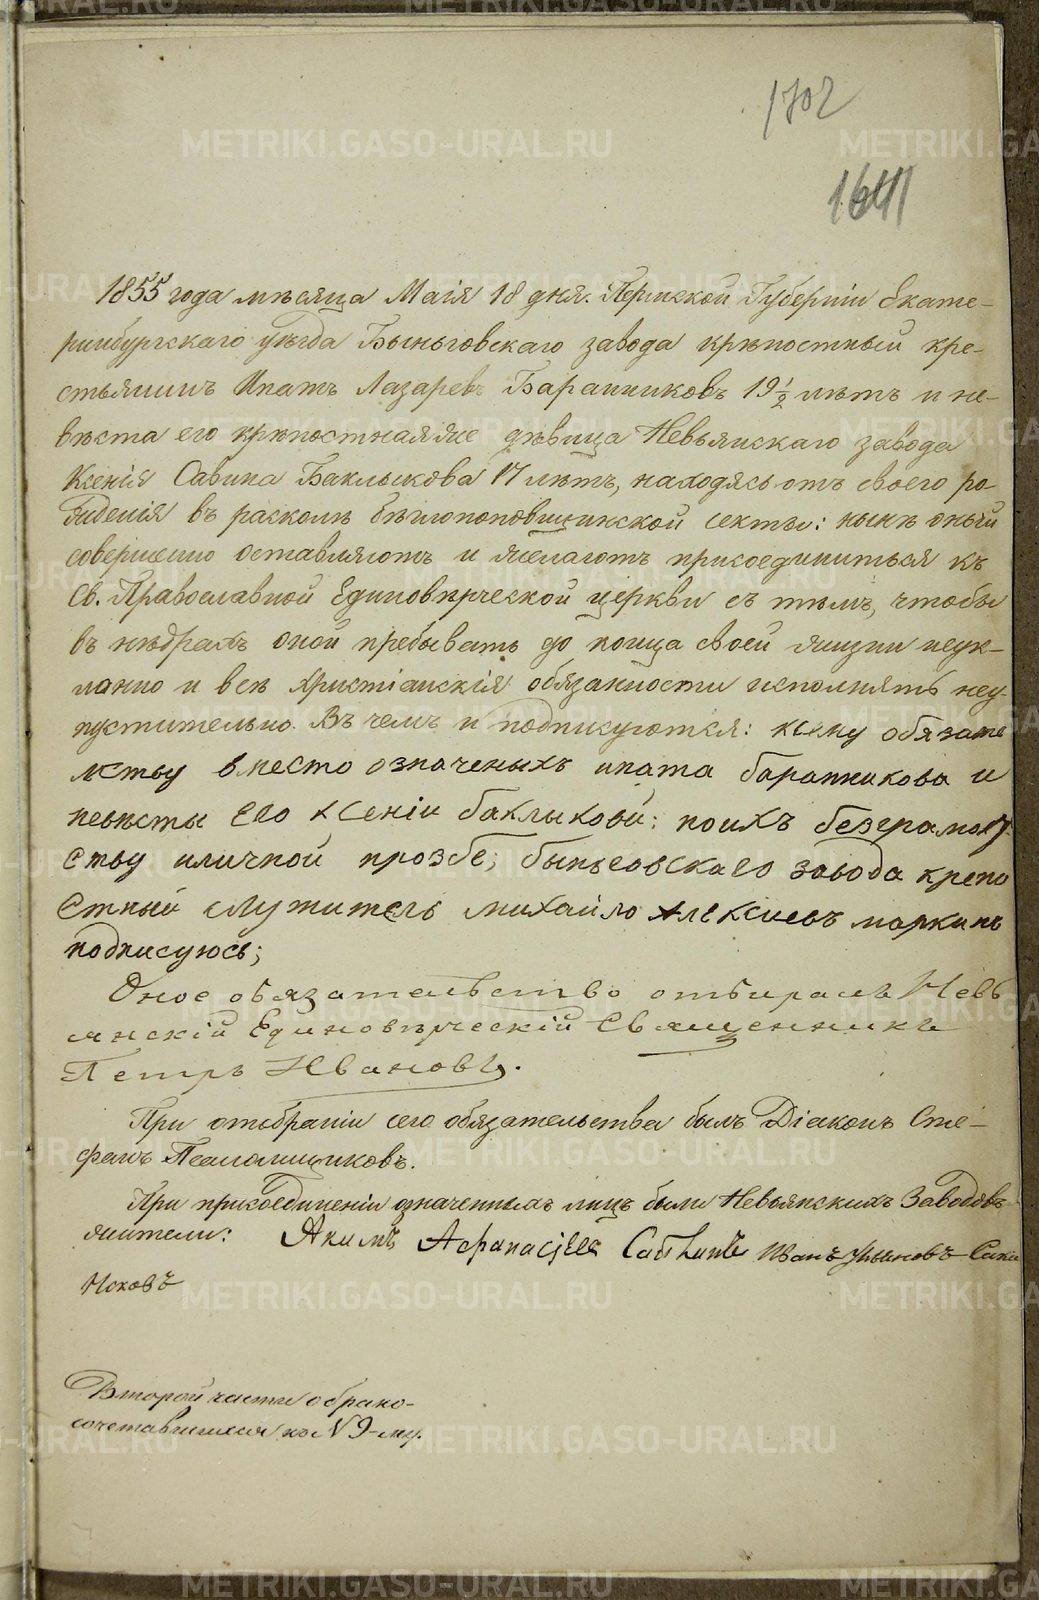 1702
1641
1855 года мѣсяца Маія 18 дня. Пермской Губерніи Екате-
ринбургскаго уѣзда Быньговскаго завода крѣпостный кре-
стьянинъ Ипатъ Лазаревъ Баранниковъ 19½ лѣтъ и не-
вѣста его крѣпостная же дѣвица Невьянскаго завода
Ксенія Савина Баклыкова 17 лѣтъ, находясь отъ своего ро-
жденія въ расколѣ бѣглопоповщинской секты: нынѣ оный
совершенно оставляютъ и желаютъ присоединиться къ
Св. Православной Единовѣрческой церкви съ тѣмъ, чтобы
въ нѣдрахъ оной пребывать до конца своей жизни неук-
лонно и всѣ христіанскія обязанности исполнять неу-
пустительно. Въ чемъ и подписуются: ксему обязате
лству вместо означеныхъ ипата баранникова и
невѣсты Его ксеніи баклыковй: поихъ безграмот
ству иличной прозбе; быньговскаго завода крепо
стный служитель михайло Алексиевъ маркинъ
подписуюсь;
Оное обязательство отбиралъ Невь
янскій Единовѣрческій Священникъ
Петръ Ивановъ.
При отобраніи сего обязательства былъ Діаконъ Сте-
фанъ Псаломщиковъ.
При присоединеніи означенныхъ лицъ были Невьянскихъ Заводовъ
жители: Якимъ Иванъ Ульяновъ
Второй части о брако-
сочетавшихся къ N 9-му.
METRIKI.GASO-URAL.RU